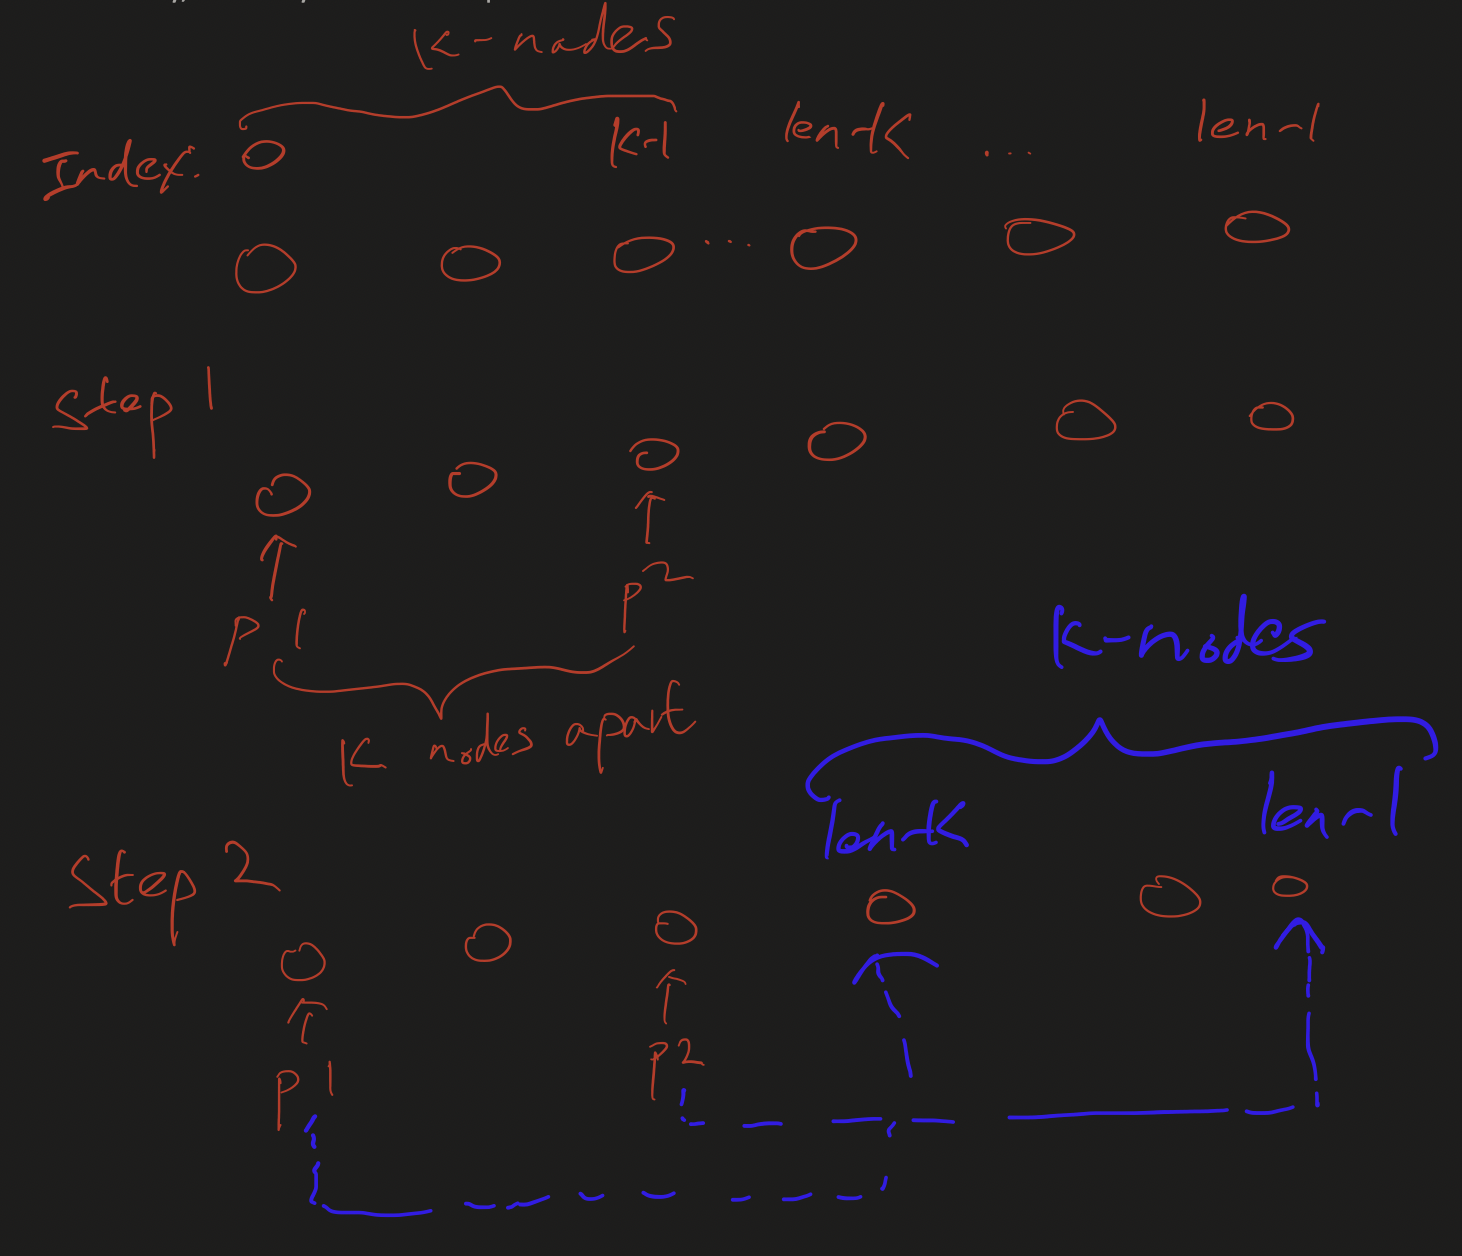 K-nodes
Index: 0 K-1 len-K ... len-1
...
Step 1
P1 P2
K nodes apart
K-nodes
len-K len-1
Step 2
P1 P2